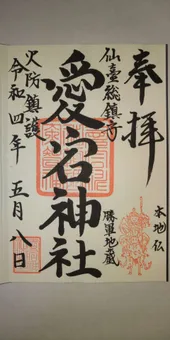 奉拝
仙臺総鎮守
勝軍地蔵
本地仏
愛宕神社
火防鎮護
令和四年 五月八日